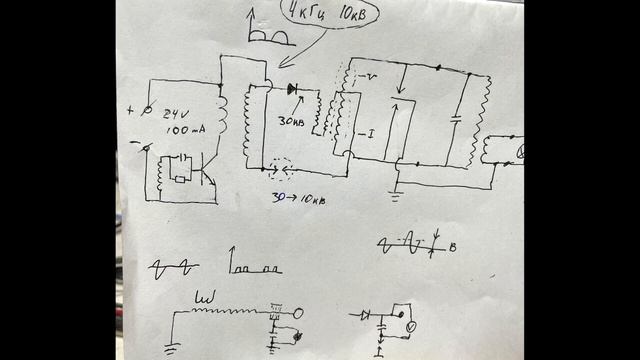 4 кГц 10кВ
+
24V
100 mA
-
30кВ
-V
-I
30→10кВ
B
W
V
I